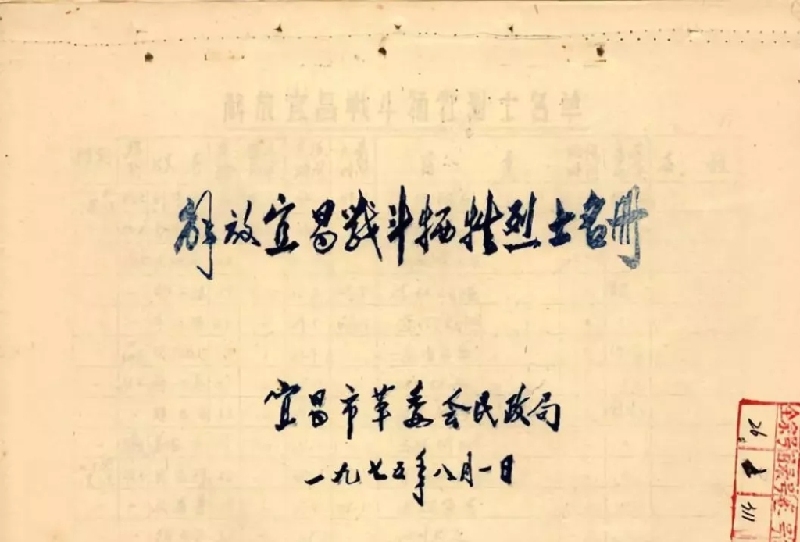 解放宜昌战斗牺牲烈士名册
宜昌市革委会民政局
一九七五年八月一日